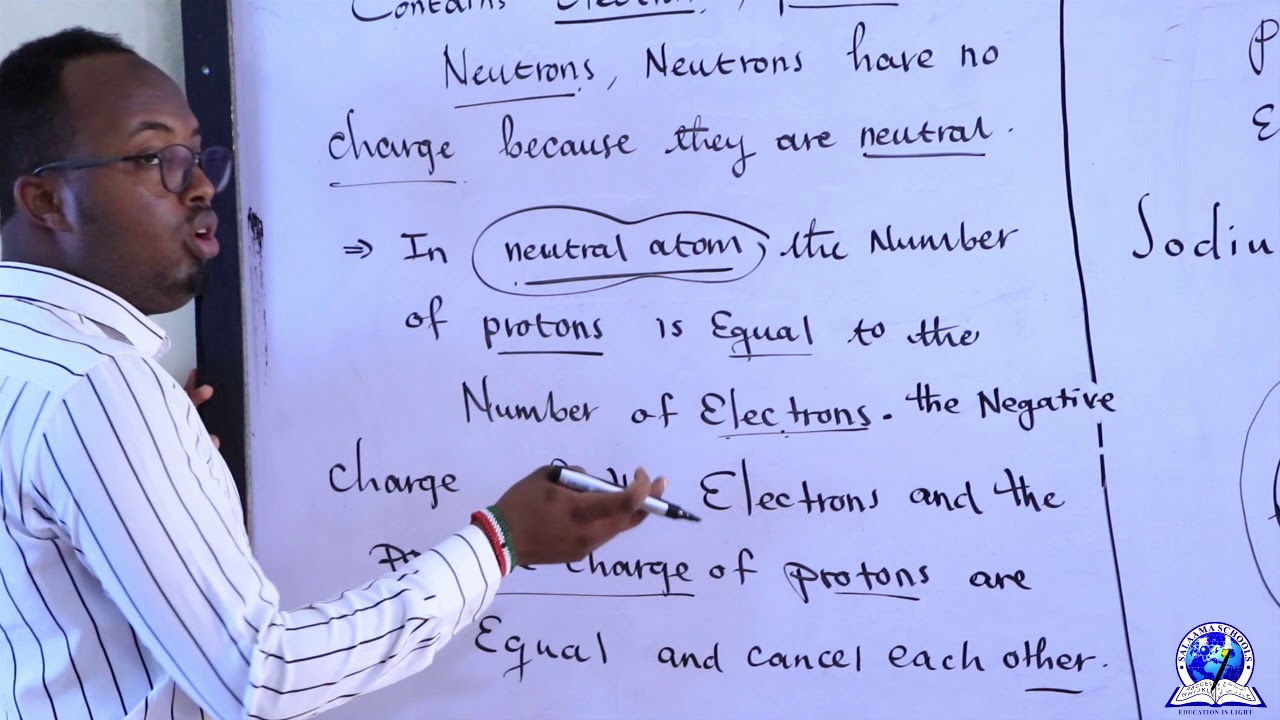 Contains Electron,
Neutrons, Neutrons have no
charge because they are neutral.
⇒ In neutral atom, the Number
of protons is Equal to the
Number of Electrons. the Negative
charge Electrons and the
charge of protons are
Equal and cancel each other.
P
E
Sodiu
SALAAMA SCHOOLS
EDUCATION IS LIGHT